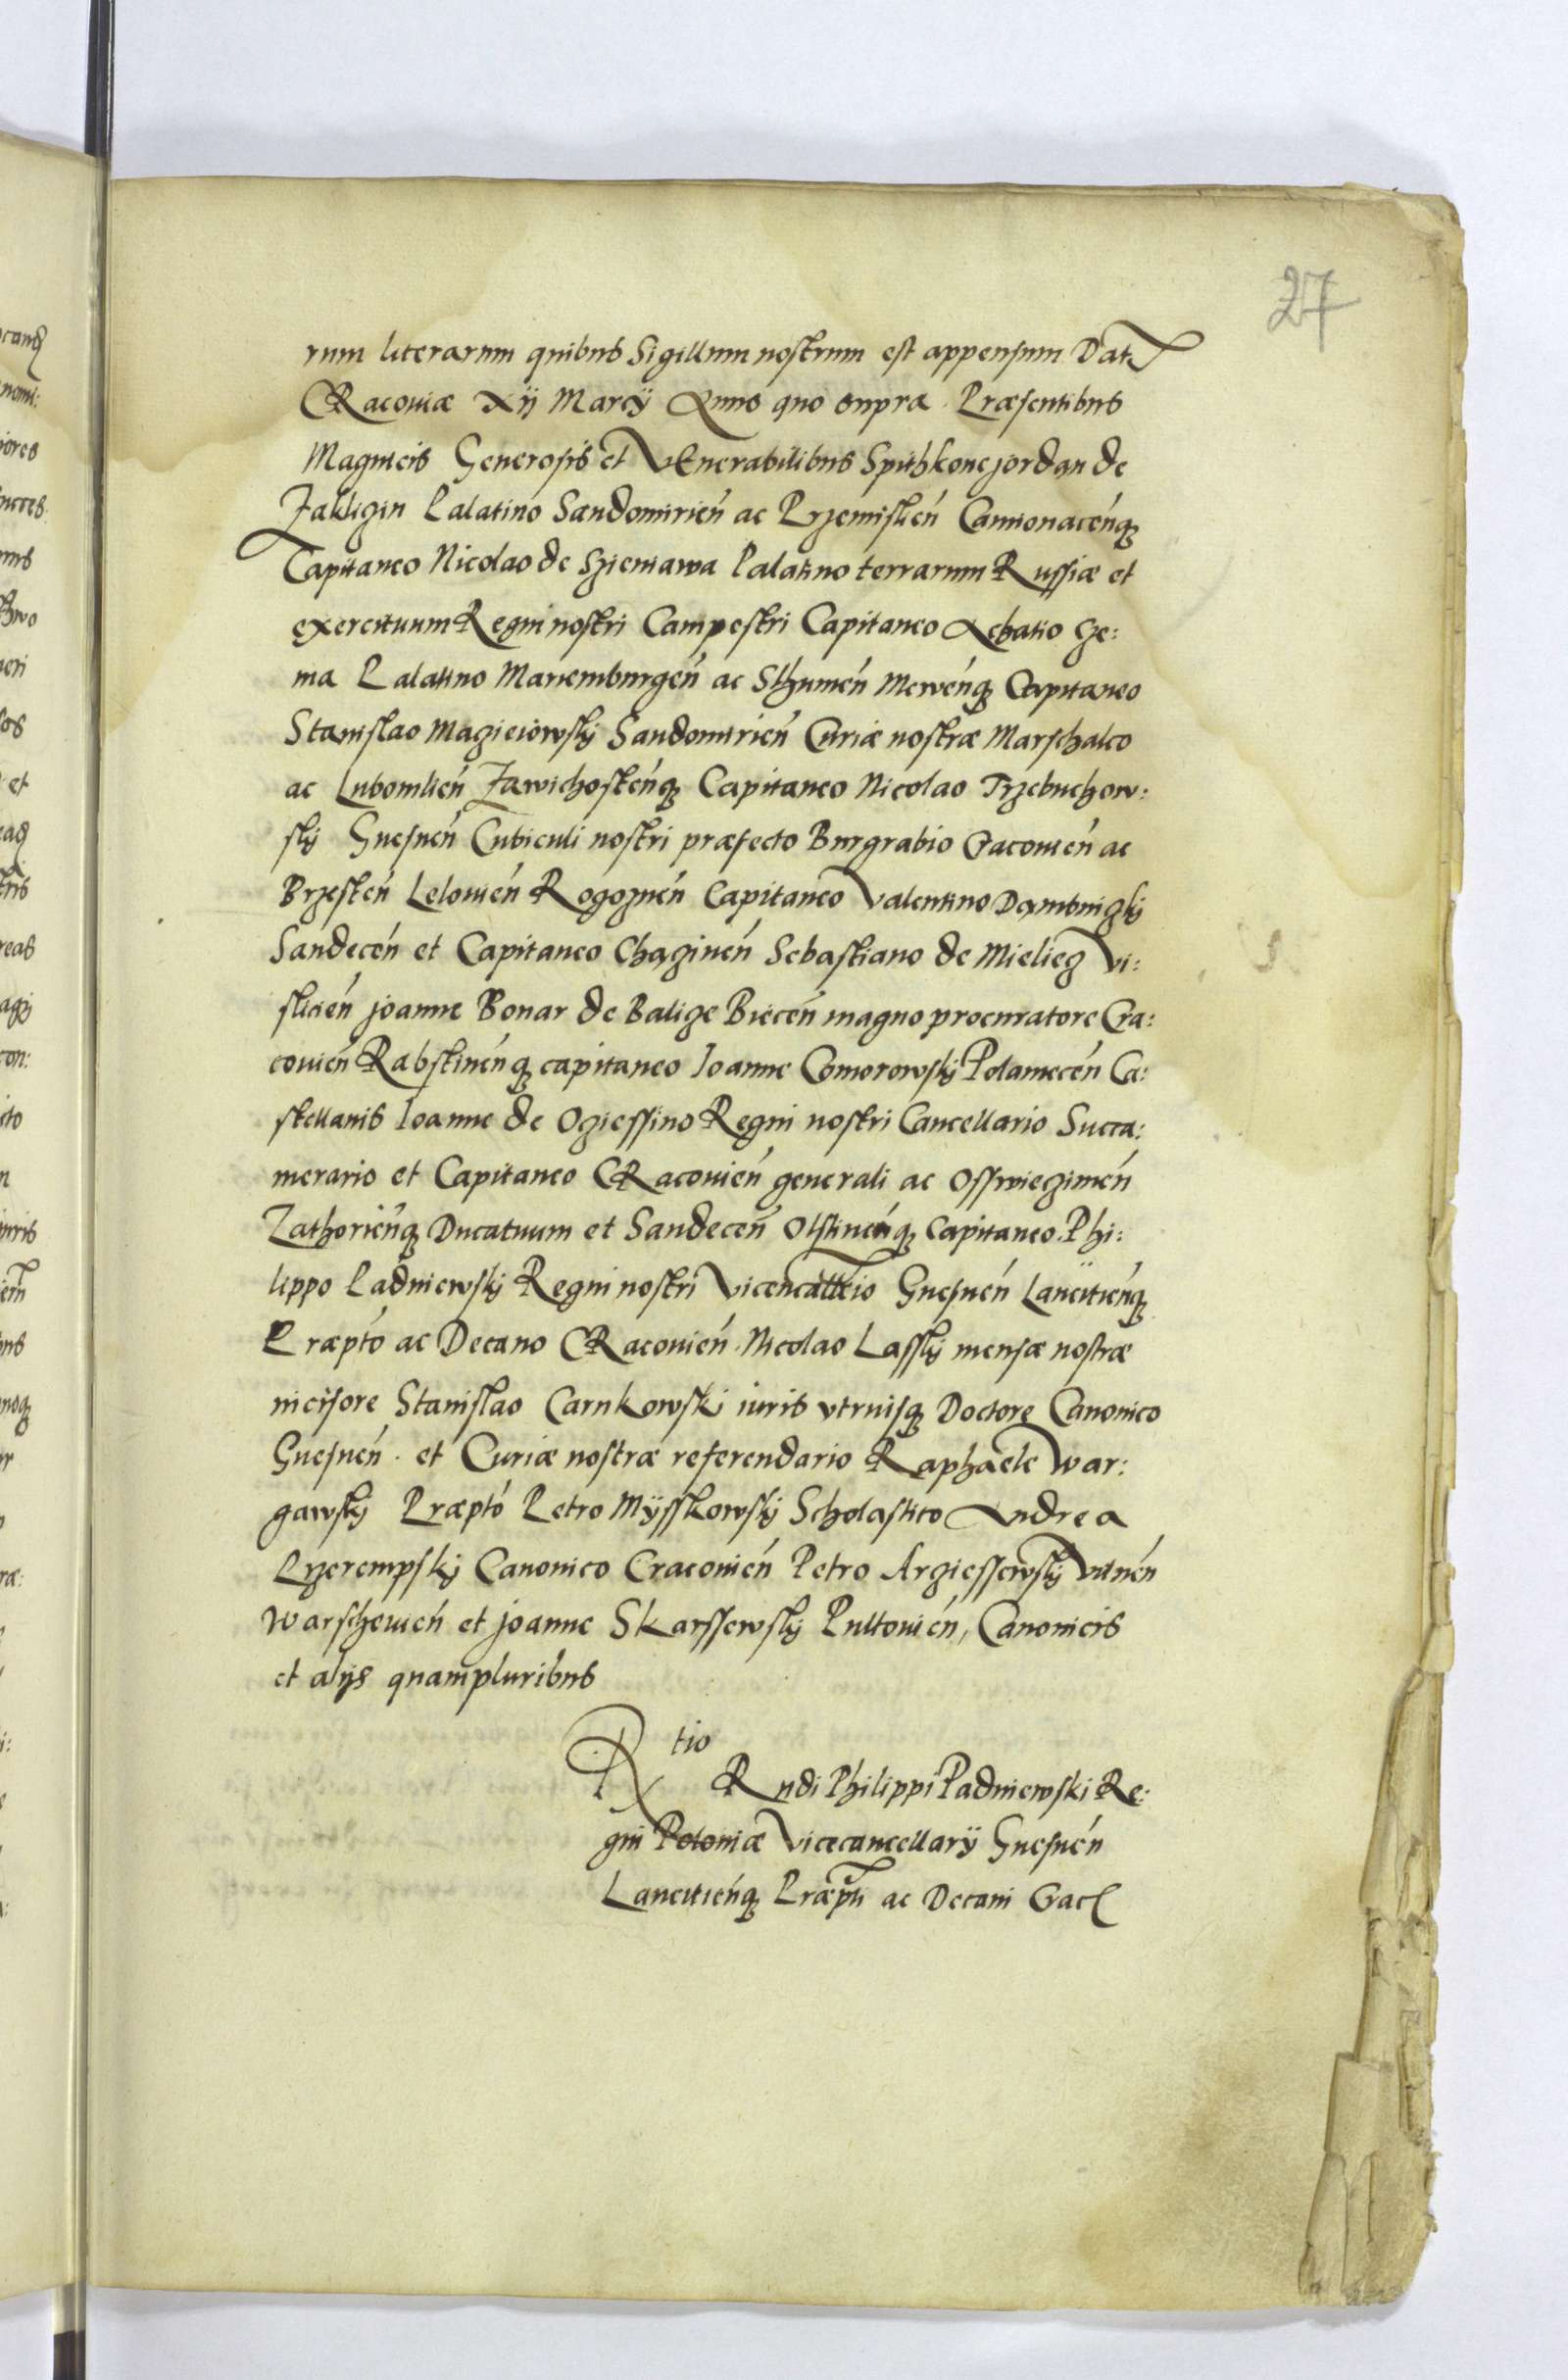 27
rum literarum quibus Sigillum nostrum est appensum Dat
CRacoviæ Xij Marcÿ Anno quo supra. Præsentibus
Magnicis Generosis et VEnerabilibus Spithkone jordan de
Zakligin Palatino Sandomirień ac Przemislień Camionaceńq
Capitaneo Nicolao de Szieniawa Palatino terrarum Russiæ et
exercituum Regni nostri Campestri Capitaneo Achatio Cze:
ma Palatino Mariemburgeń ac Sthumeń Meweńq Capitaneo
Stanislao Magieiowskÿ Sandomirień Curiæ nostræ Marschalco
ac Lubomlień Zawichosteńq Capitaneo Nicolao Trzebuchow:
skÿ Gnesneń Cubiculi nostri præfecto Burgrabio Cracovień ac
Brzesteń Lelovień Rogozneń Capitaneo Valentino Dambnigkÿ
Sandeceń et Capitaneo Chgzineń Sebastiano de Mielieg Vi:
slicień joanne Bonar de Balize Bieceń magno procuratore Cra:
covień Rabstineńq capitaneo Ioanne Comorowskÿ Polanieceń Ca:
stellanis Ioanne de Ogiessino Regni nostri Cancellario Succa:
merario et Capitaneo CRacovień generali ac Osswiegimeń
Zathorieńq Ducatuum et Sandeceń Olstineńq Capitaneo. Phi:
lippo Padniewskÿ Regni nostri Vicencallrio Gnesneń Lancitieńq
Præpto ac Decano CRacovień. Nicolao Lasskÿ mensæ nostræ
incisore Stanislao Carnkowski iuris vtriusq Doctore Canonico
Gnesneń. et Curiæ nostræ referendario Raphaele War:
gawskÿ Præptó Petro Mÿsskowskÿ Scholastico Andrea
Przerempskÿ Canonico Cracovień Petro Argiessewskÿ Vilneń
Warschevień et joanne Skarssewskÿ Pultovień, Canonicis
et alijs quampluribus
Rtio
Rndi Philippi Padniewski Re:
gni Poloniæ Vicecancellarÿ Gnesneń
Lancitieńq Præpti ac Decani Crac